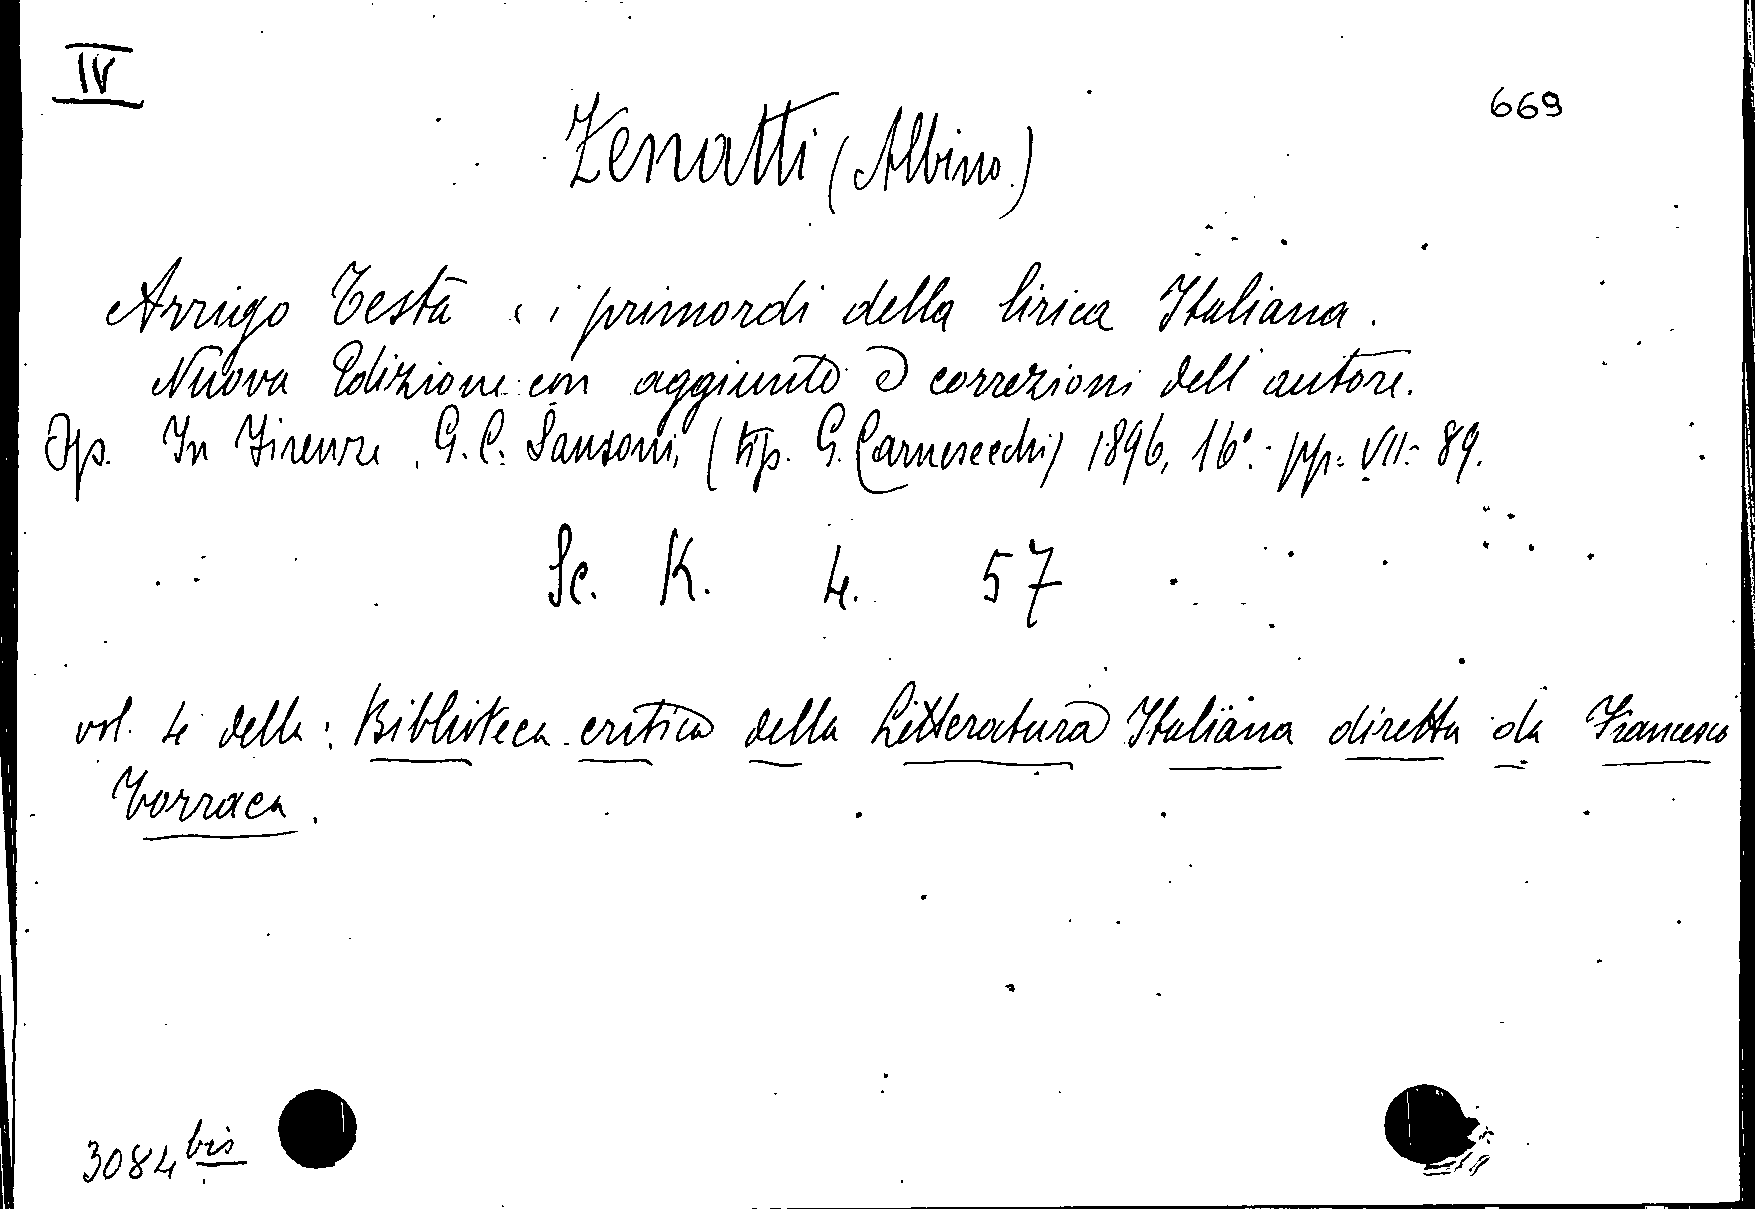 IV
669
Zenatti (Albino)
Arrigo Testa e i primordi della lirica Italiana.
Nuova Edizione con aggiunte e correzioni dell'autore.
Op. In Firenze, G. C. Sansoni, (tip. G. Carnesecchi) 1896, 16°. pp. VII-89.
Sc. K. 4. 57
vol. 4 della: Biblioteca critica della Letteratura Italiana diretta da Francesco
Torraca.
3084 bis